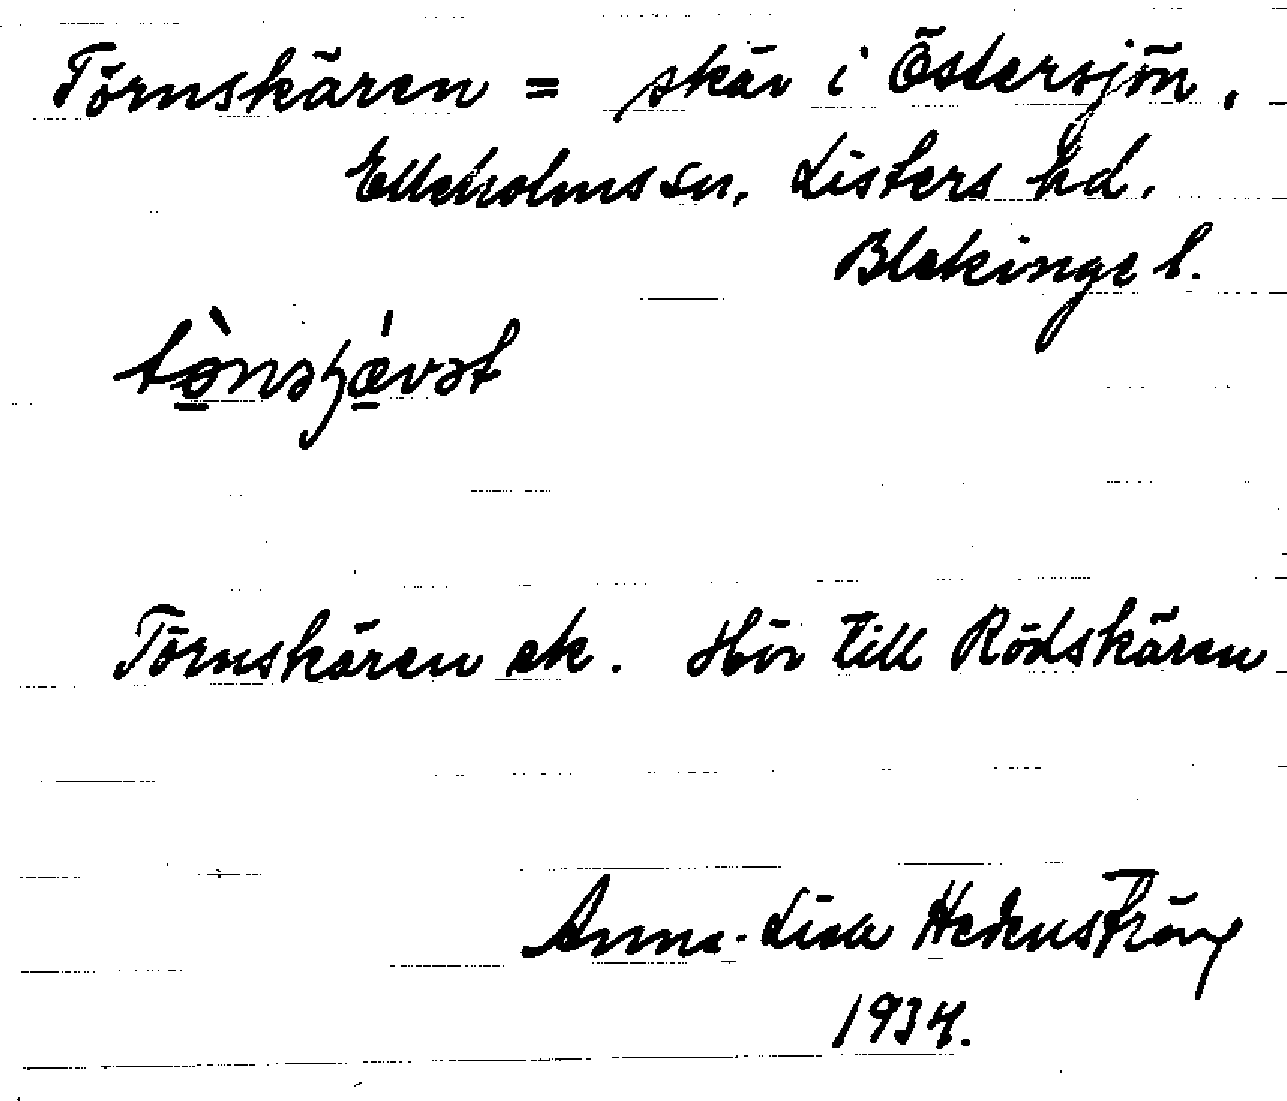 Törnskären = skär i Östersjön,
Elleholms sn, Listers hd.
Blekinge l.
Törnskären ek. Hör till Rödskären
Anna-Lisa Hedenström
1934.